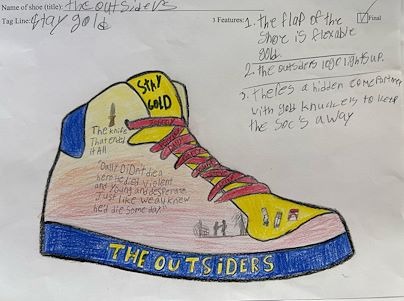 Name of shoe (title): the outsiders
Tag Line: stay gold
3 Features: 1. the flap of the
shoe is flexable
gold
2. the outsiders logo lights up.
3. theres a hidden compartment
with gold knuckels to keep
the soc's away
Final
STAY
GOLD
The knife
That ended
it All
"Dally DiDn't die a
hero. He died violent
and young and desperate
Just like we all knew
he'd die some day"
THE OUTSiDERS